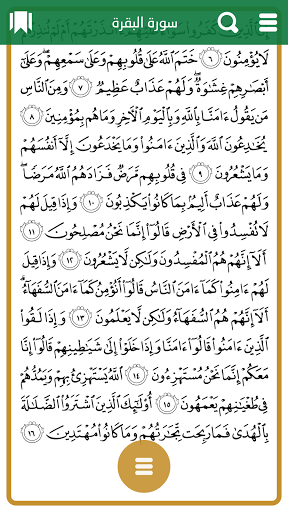 سورة البقرة
لَا يُؤْمِنُونَ ٦ خَتَمَ اللَّهُ عَلَىٰ قُلُوبِهِمْ وَعَلَىٰ سَمْعِهِمْ وَعَلَىٰ
أَبْصَارِهِمْ غِشَاوَةٌ وَلَهُمْ عَذَابٌ عَظِيمٌ ٧ وَمِنَ النَّاسِ
مَن يَقُولُ آمَنَّا بِاللَّهِ وَبِالْيَوْمِ الْآخِرِ وَمَا هُم بِمُؤْمِنِينَ ٨
يُخَادِعُونَ اللَّهَ وَالَّذِينَ آمَنُوا وَمَا يَخْدَعُونَ إِلَّا أَنفُسَهُمْ
وَمَا يَشْعُرُونَ ٩ فِي قُلُوبِهِم مَّرَضٌ فَزَادَهُمُ اللَّهُ مَرَضًا
وَلَهُمْ عَذَابٌ أَلِيمٌ بِمَا كَانُوا يَكْذِبُونَ ١٠ وَإِذَا قِيلَ لَهُمْ
لَا تُفْسِدُوا فِي الْأَرْضِ قَالُوا إِنَّمَا نَحْنُ مُصْلِحُونَ ١١
أَلَا إِنَّهُمْ هُمُ الْمُفْسِدُونَ وَلَٰكِن لَّا يَشْعُرُونَ ١٢ وَإِذَا قِيلَ
لَهُمْ آمِنُوا كَمَا آمَنَ النَّاسُ قَالُوا أَنُؤْمِنُ كَمَا آمَنَ السُّفَهَاءُ
أَلَا إِنَّهُمْ هُمُ السُّفَهَاءُ وَلَٰكِن لَّا يَعْلَمُونَ ١٣ وَإِذَا لَقُوا
الَّذِينَ آمَنُوا قَالُوا آمَنَّا وَإِذَا خَلَوْا إِلَىٰ شَيَاطِينِهِمْ قَالُوا إِنَّا
مَعَكُمْ إِنَّمَا نَحْنُ مُسْتَهْزِئُونَ ١٤ اللَّهُ يَسْتَهْزِئُ بِهِمْ وَيَمُدُّهُمْ
فِي طُغْيَانِهِمْ يَعْمَهُونَ ١٥ أُولَٰئِكَ الَّذِينَ اشْتَرَوُا الضَّلَالَةَ
بِالْهُدَىٰ فَمَا رَبِحَت تِّجَارَتُهُمْ وَمَا كَانُوا مُهْتَدِينَ ١٦